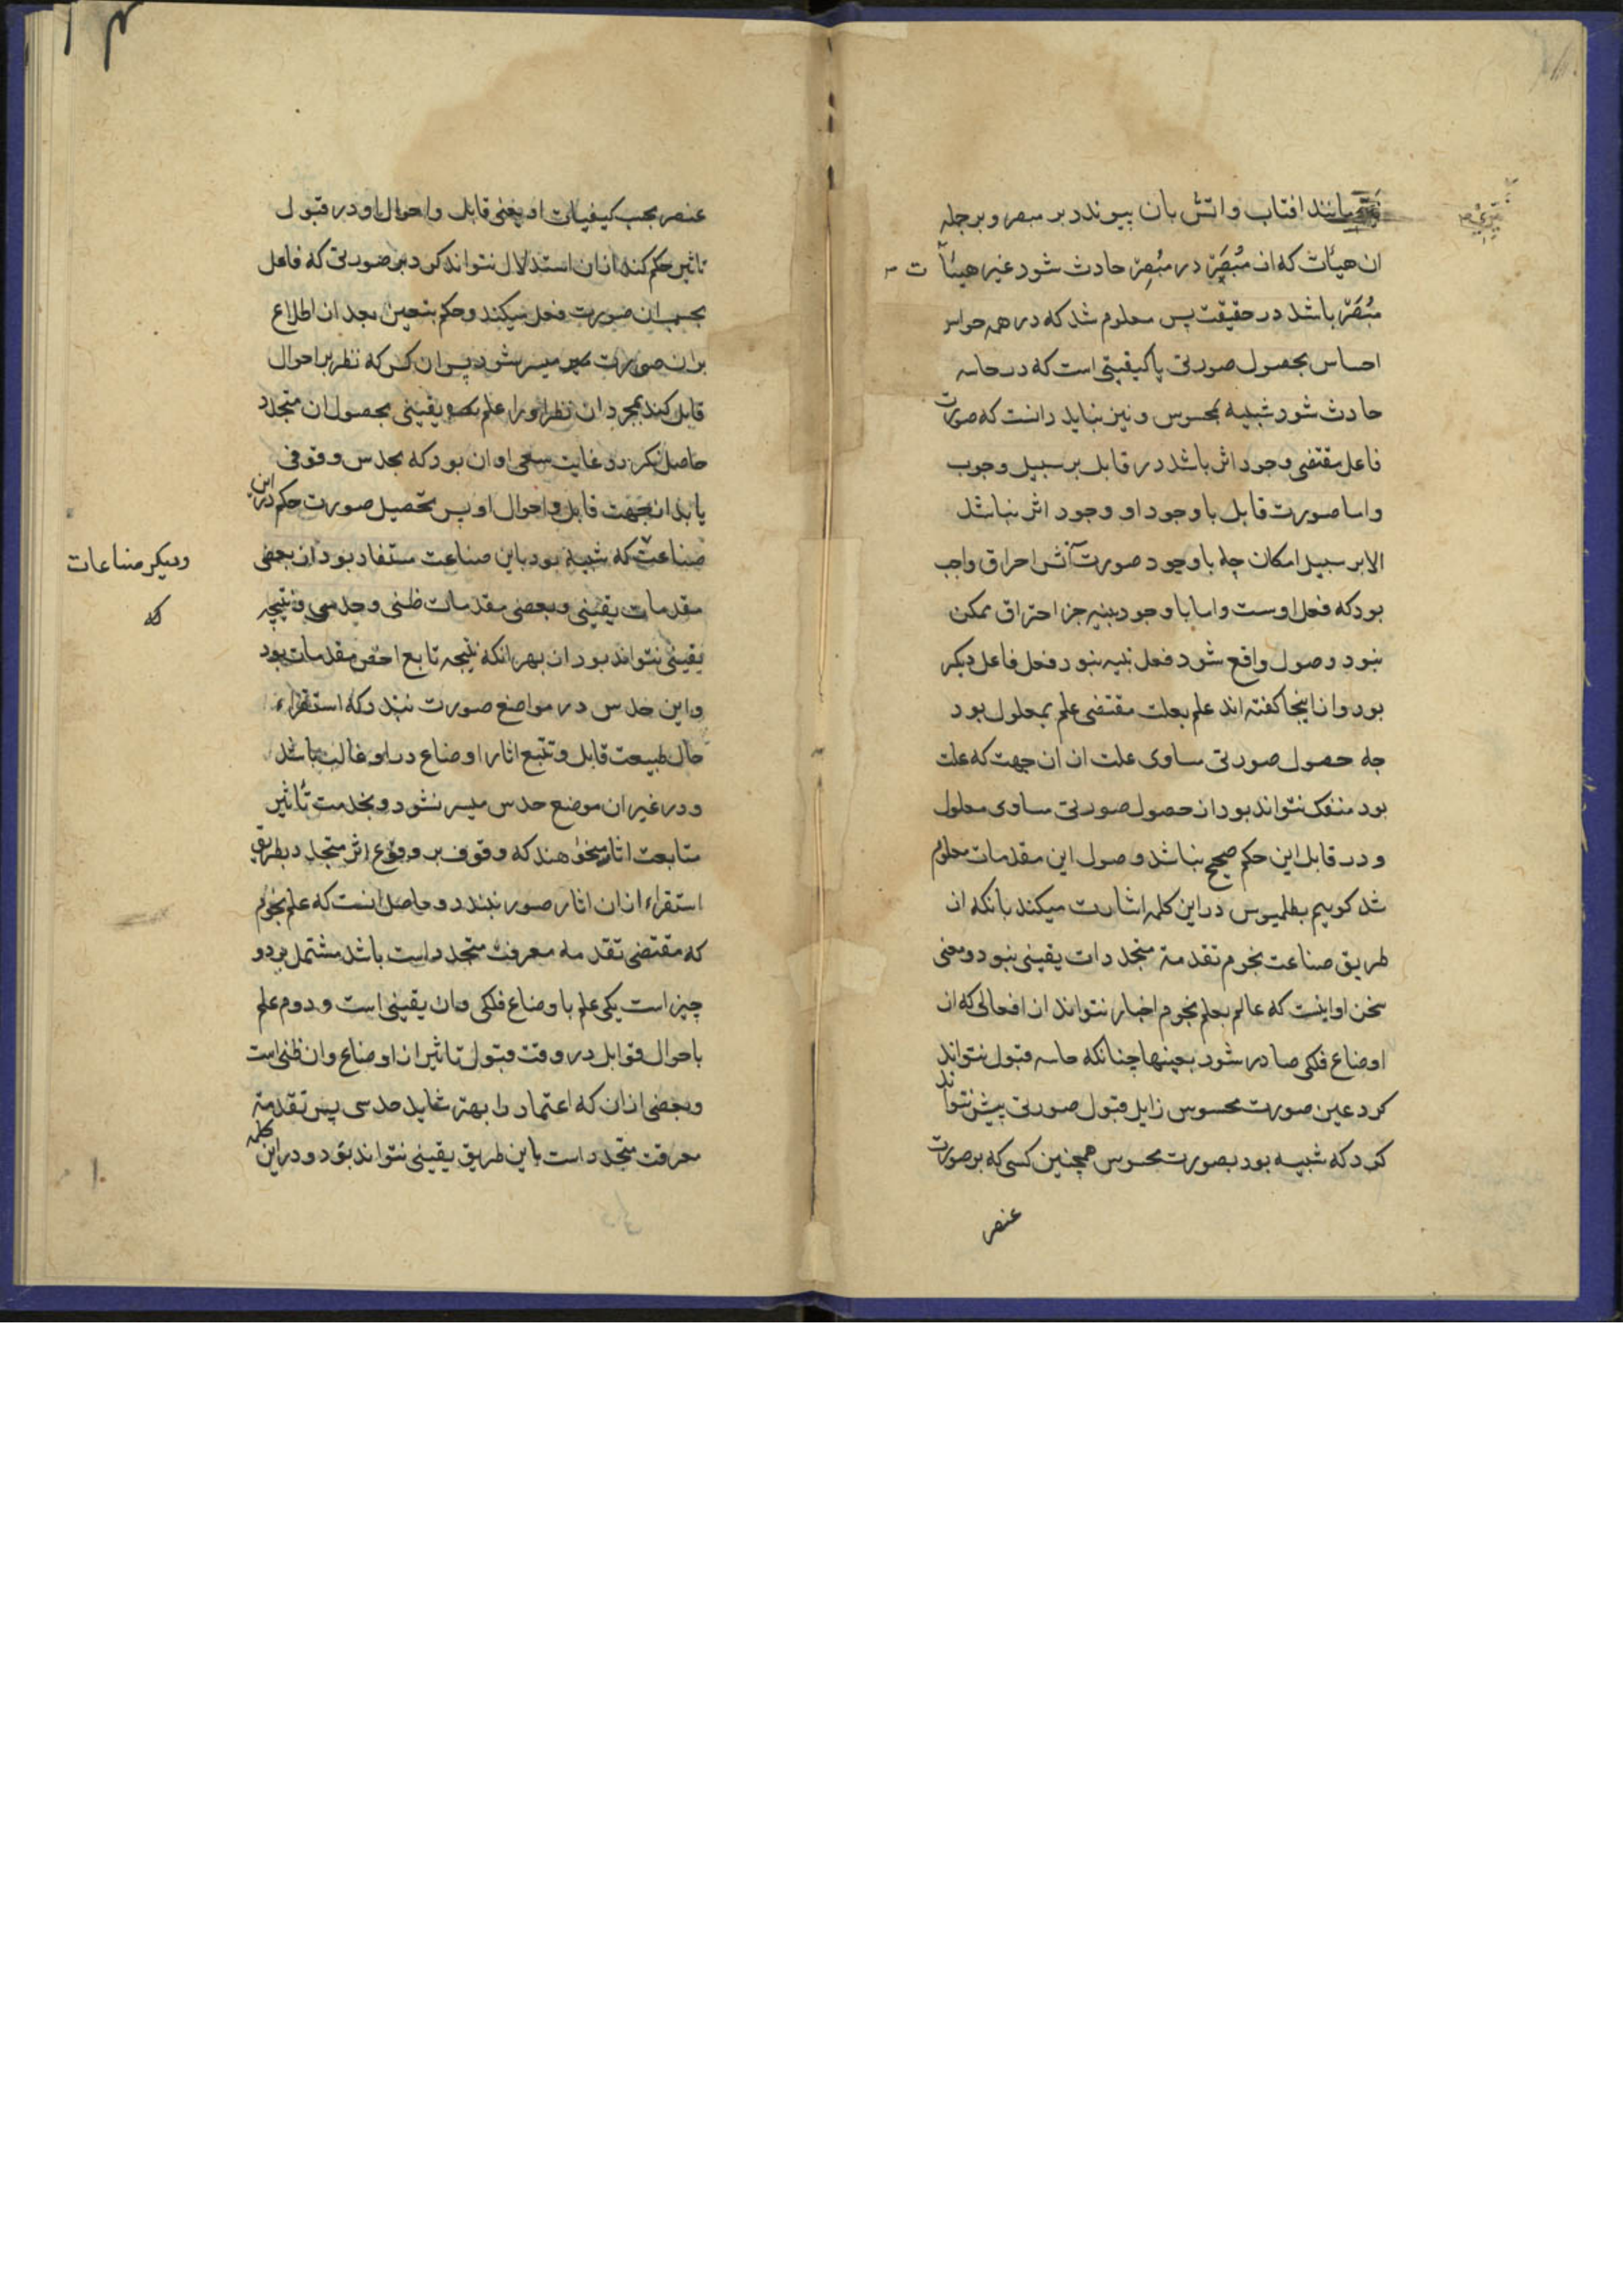 مانند افتاب و اتش بان پیوندد بر مبصر و بر جمله
ان هیأت که از مُبْصَرْ در مُبْصِرْ حادث شود غیر هیئآت
مُبْصَرْ باشد در حقیقت پس معلوم شد که در همه حواس
احساس بحصول صورتی یا کیفیتی است که در حاسه
حادث شود شبیه بمحسوس و نیز بباید دانست که صورت
فاعل مقتضی وجود اثر باشد در قابل بر سبیل وجوب
و اما صورت قابل با وجود او وجود اثر نباشد
الا بر سبیل امکان چه با وجود صورت آتش احراق واجب
بود که فعل اوست و اما با وجود پنبه جز احتراق ممکن
نبود و صول واقع شود فعل پنبه نبود فعل فاعل دیکر
بود و از اینجا کفته اند علم بعلت مقتضی علم بمعلول بود
چه حصول صورتی مساوی علت از ان جهت که علت
بود منفک نتواند بود از حصول صورتی مساوی معلول
و در قابل این حکم صحیح نباشد و صول این مقدمات معلوم
شد کوییم بطلمیوس در این کلمه اشارت میکند بانکه از
طریق صناعت نجوم تقدمة متجددات یقینی نبود و معنی
سخن او اینست که عالم بعلم نجوم اخبار نتواند از افعالی که از
اوضاع فلکی صادر شود بعینها چنانکه حاسه قبول نتواند
کرد عین صورت محسوس زایل قبول صورتی بیش نتواند
کرد که شبیه بود بصورت محسوس همچنین کسی که بر صورت
عنصر
عنصر بحسب کیفیات او یعنی قابل و احوال او در قبول
تاثیر حکم کند از ان استدلال نتواند کرد بر صورتی که فاعل
بحسب ان صورت فعل میکند و حکم بتعین بعد از اطلاع
بران صورت میسر شود پس ان کس که نظر بر احوال
قابل کند بمجرد ان نظر او را علم یقینی بحصول ان متجدد
حاصل نکردد و غایت سعی او ان بود که بحدس وقوفی
یابد از جهت قابل و احوال او پس تحصیل صورت حکم در این
صناعت که شبیه بود باین صناعت مستفاد بود از بعضی
ودیکر صناعات
که
مقدمات یقینی و بعضی مقدمات ظنی و حدسی و نتیجه
یقینی نتواند بود از بهر انکه نتیجه تابع اخس مقدمات بود
و این حدس در مواضع صورت بندد که استقراء
حال طبیعت قابل و تتبع اثار اوضاع در او غالب باشد
و در غیر ان موضع حدس میسر نشود و بخدمت تأثیر
متابعت اثار میخواهند که وقوف بر وقوع اثر متجدد بطریق
استقراء از ان اثار صور بندد و حاصل انست که علم نجوم
که مقتضی تقدمه معرفت متجددات باشد مشتمل بر دو
چیز است یکی علم باوضاع فلکی وان یقینی است و دوم علم
باحوال قوابل در وقت قبول تاثیر ان اوضاع وان ظنی است
و بعضی از ان که اعتماد را بهتر شاید حدسی پس تقدمة
معرفت متجددات باین طریق یقینی نتواند بود و در این کلمه